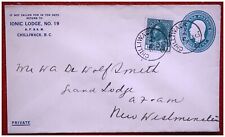 IF NOT CALLED FOR IN TEN DAYS
RETURN TO
IONIC LODGE, NO. 19
A. F. & A. M.
CHILLIWACK, B.C.
CHILLIWACK
Mr W A De Wolf Smith
Grand Lodge
A F & A M
New Westminster
PRIVATE